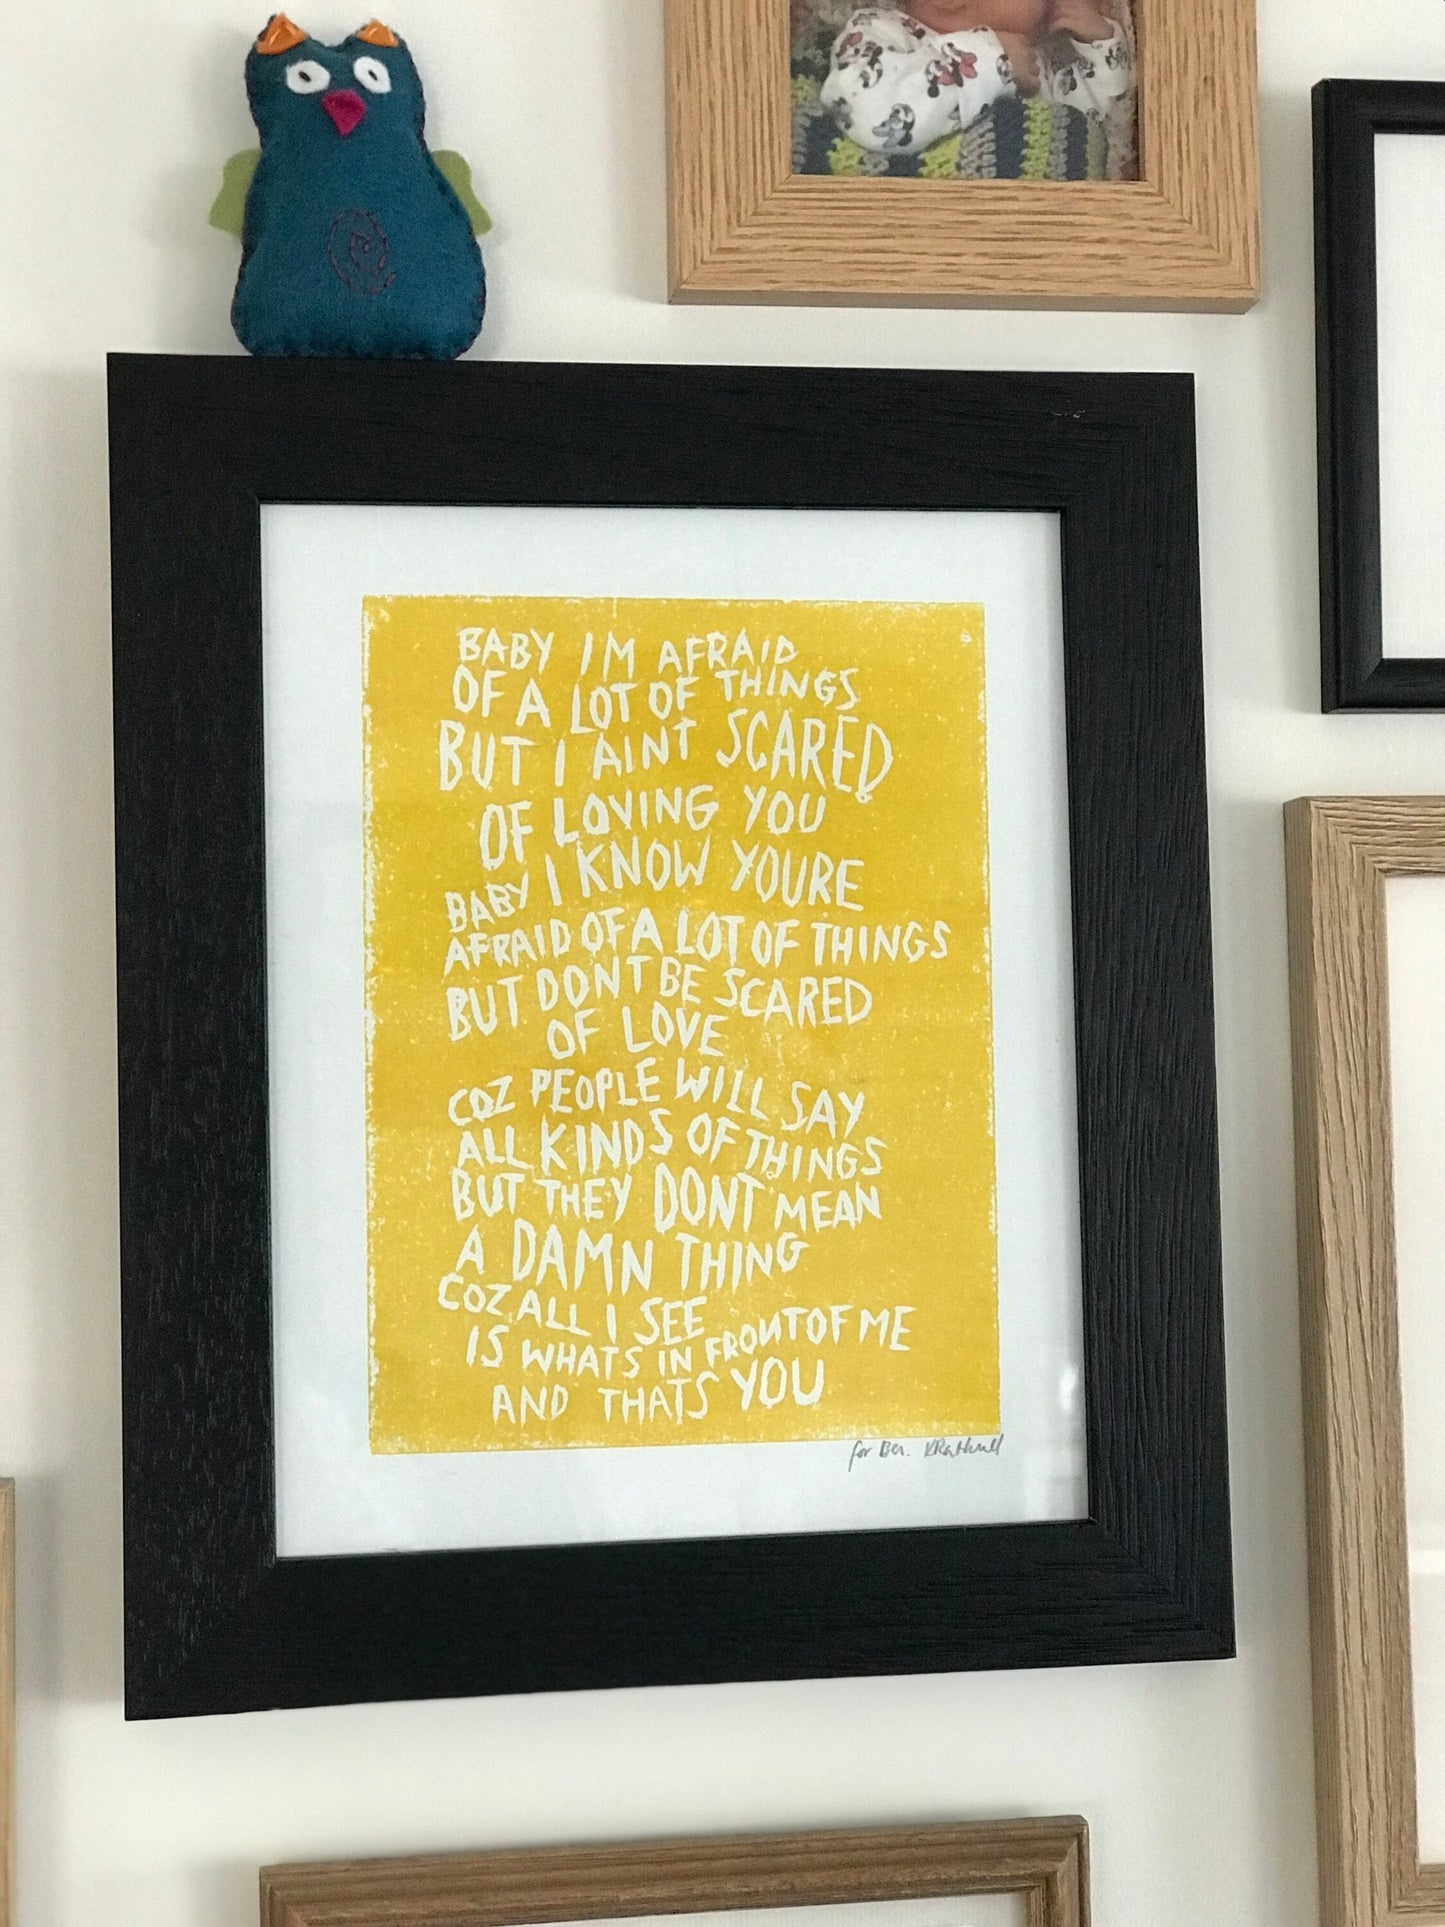 BABY IM AFRAID
OF A LOT OF THINGS
BUT I AINT SCARED
OF LOVING YOU
BABY I KNOW YOURE
AFRAID OF A LOT OF THINGS
BUT DONT BE SCARED
OF LOVE
COZ PEOPLE WILL SAY
ALL KINDS OF THINGS
BUT THEY DONT MEAN
A DAMN THING
COZ ALL I SEE
IS WHATS IN FRONT OF ME
AND THATS YOU
for Ben.